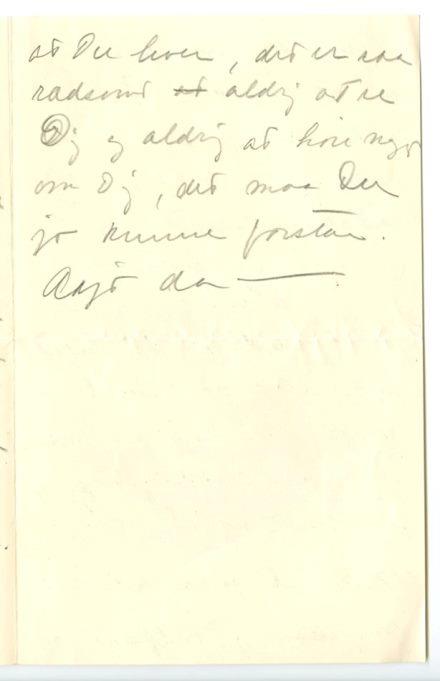 at Du lever, det er saa
rædsomt at aldrig at se
Dig og aldrig at høre noget
om Dig, det maa Du
jo kunne forstaa.
Adjø da —